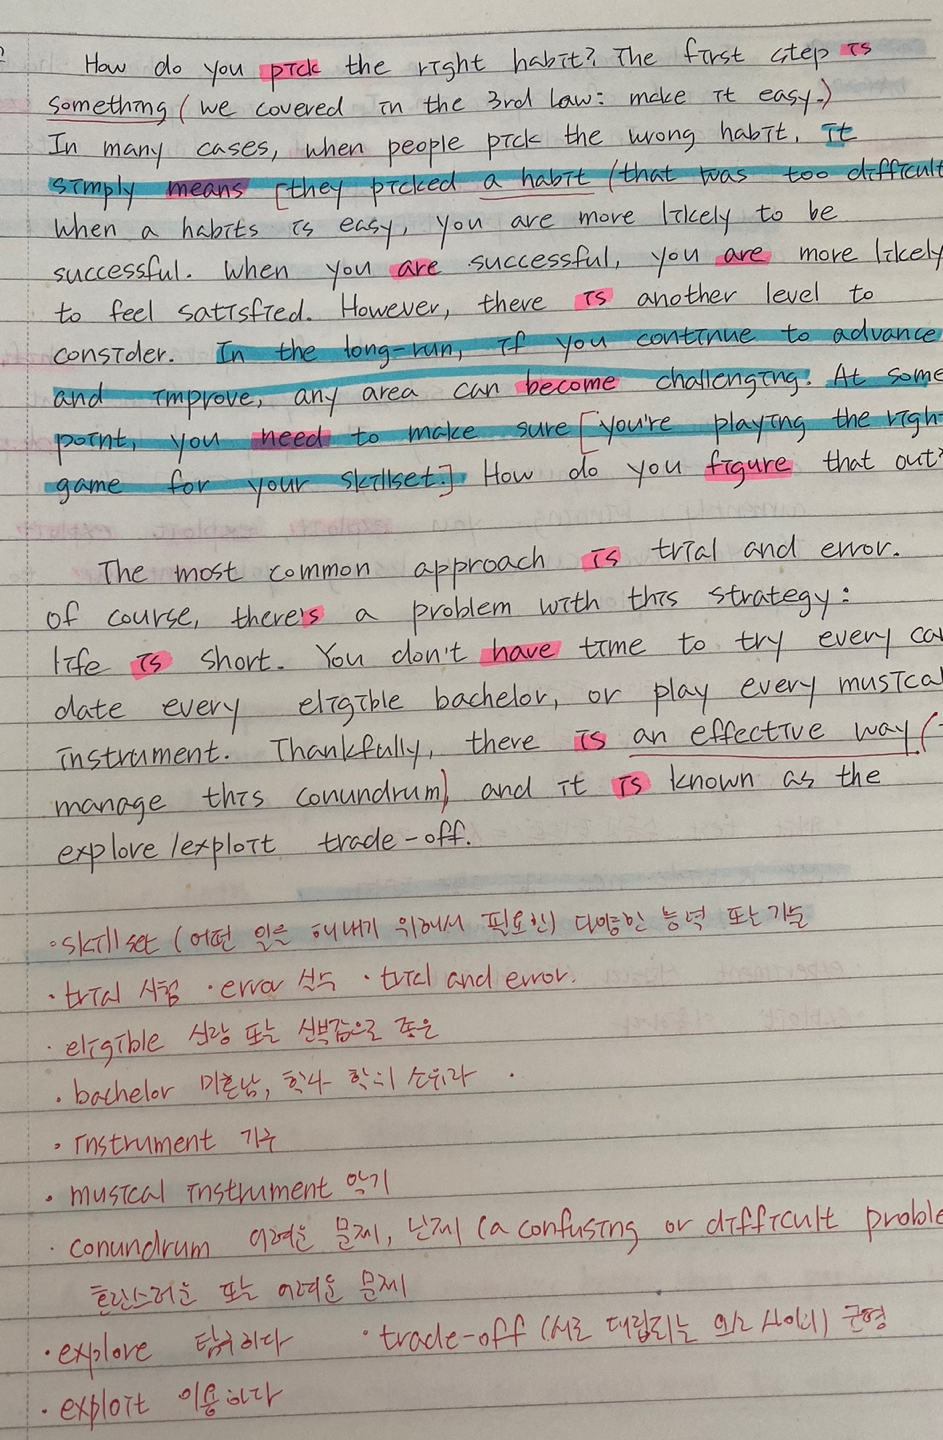 How do you pick the right habit? The first step is
something (we covered in the 3rd Law: make it easy.)
In many cases, when people pick the wrong habit, it
simply means [they picked a habit (that was too difficult
when a habits is easy, you are more likely to be
successful. When you are successful, you are more likely
to feel satisfied. However, there is another level to
consider. In the long-run, if you continue to advance
and improve, any area can become challenging. At some
point, you need to make sure [you're playing the righ
game for your skillset.] How do you figure that out?
The most common approach is trial and error.
of course, there's a problem with this strategy:
life is short. You don't have time to try every ca
date every eligible bachelor, or play every musical
instrument. Thankfully, there is an effective way (
manage this conundrum), and it is known as the
explore/exploit trade-off.
·skillset (어떤 일을 해내기 위해서 필요한) 다양한 능력 또는 기술
·trial 시험 ·error 실수 ·trial and error.
·eligible 신랑 또는 신붓감으로 좋은
·bachelor 미혼남, 학사 학위 소유자
·instrument 기구
·musical instrument 악기
·conundrum 어려운 문제, 난제 (a confusing or difficult proble
혼란스러운 또는 어려운 문제
·explore 탐구하다 ·trade-off (서로 대립되는 요소 사이의) 균형
·exploit 이용하다